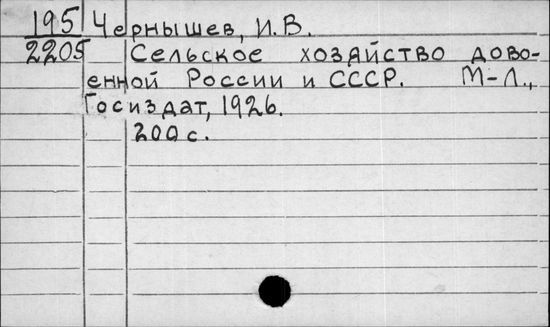 195 Чернышев, И.В.
2205 Сельское хозяйство дово-
енной России и СССР. М-Л.,
Госиздат, 1926.
200 с.